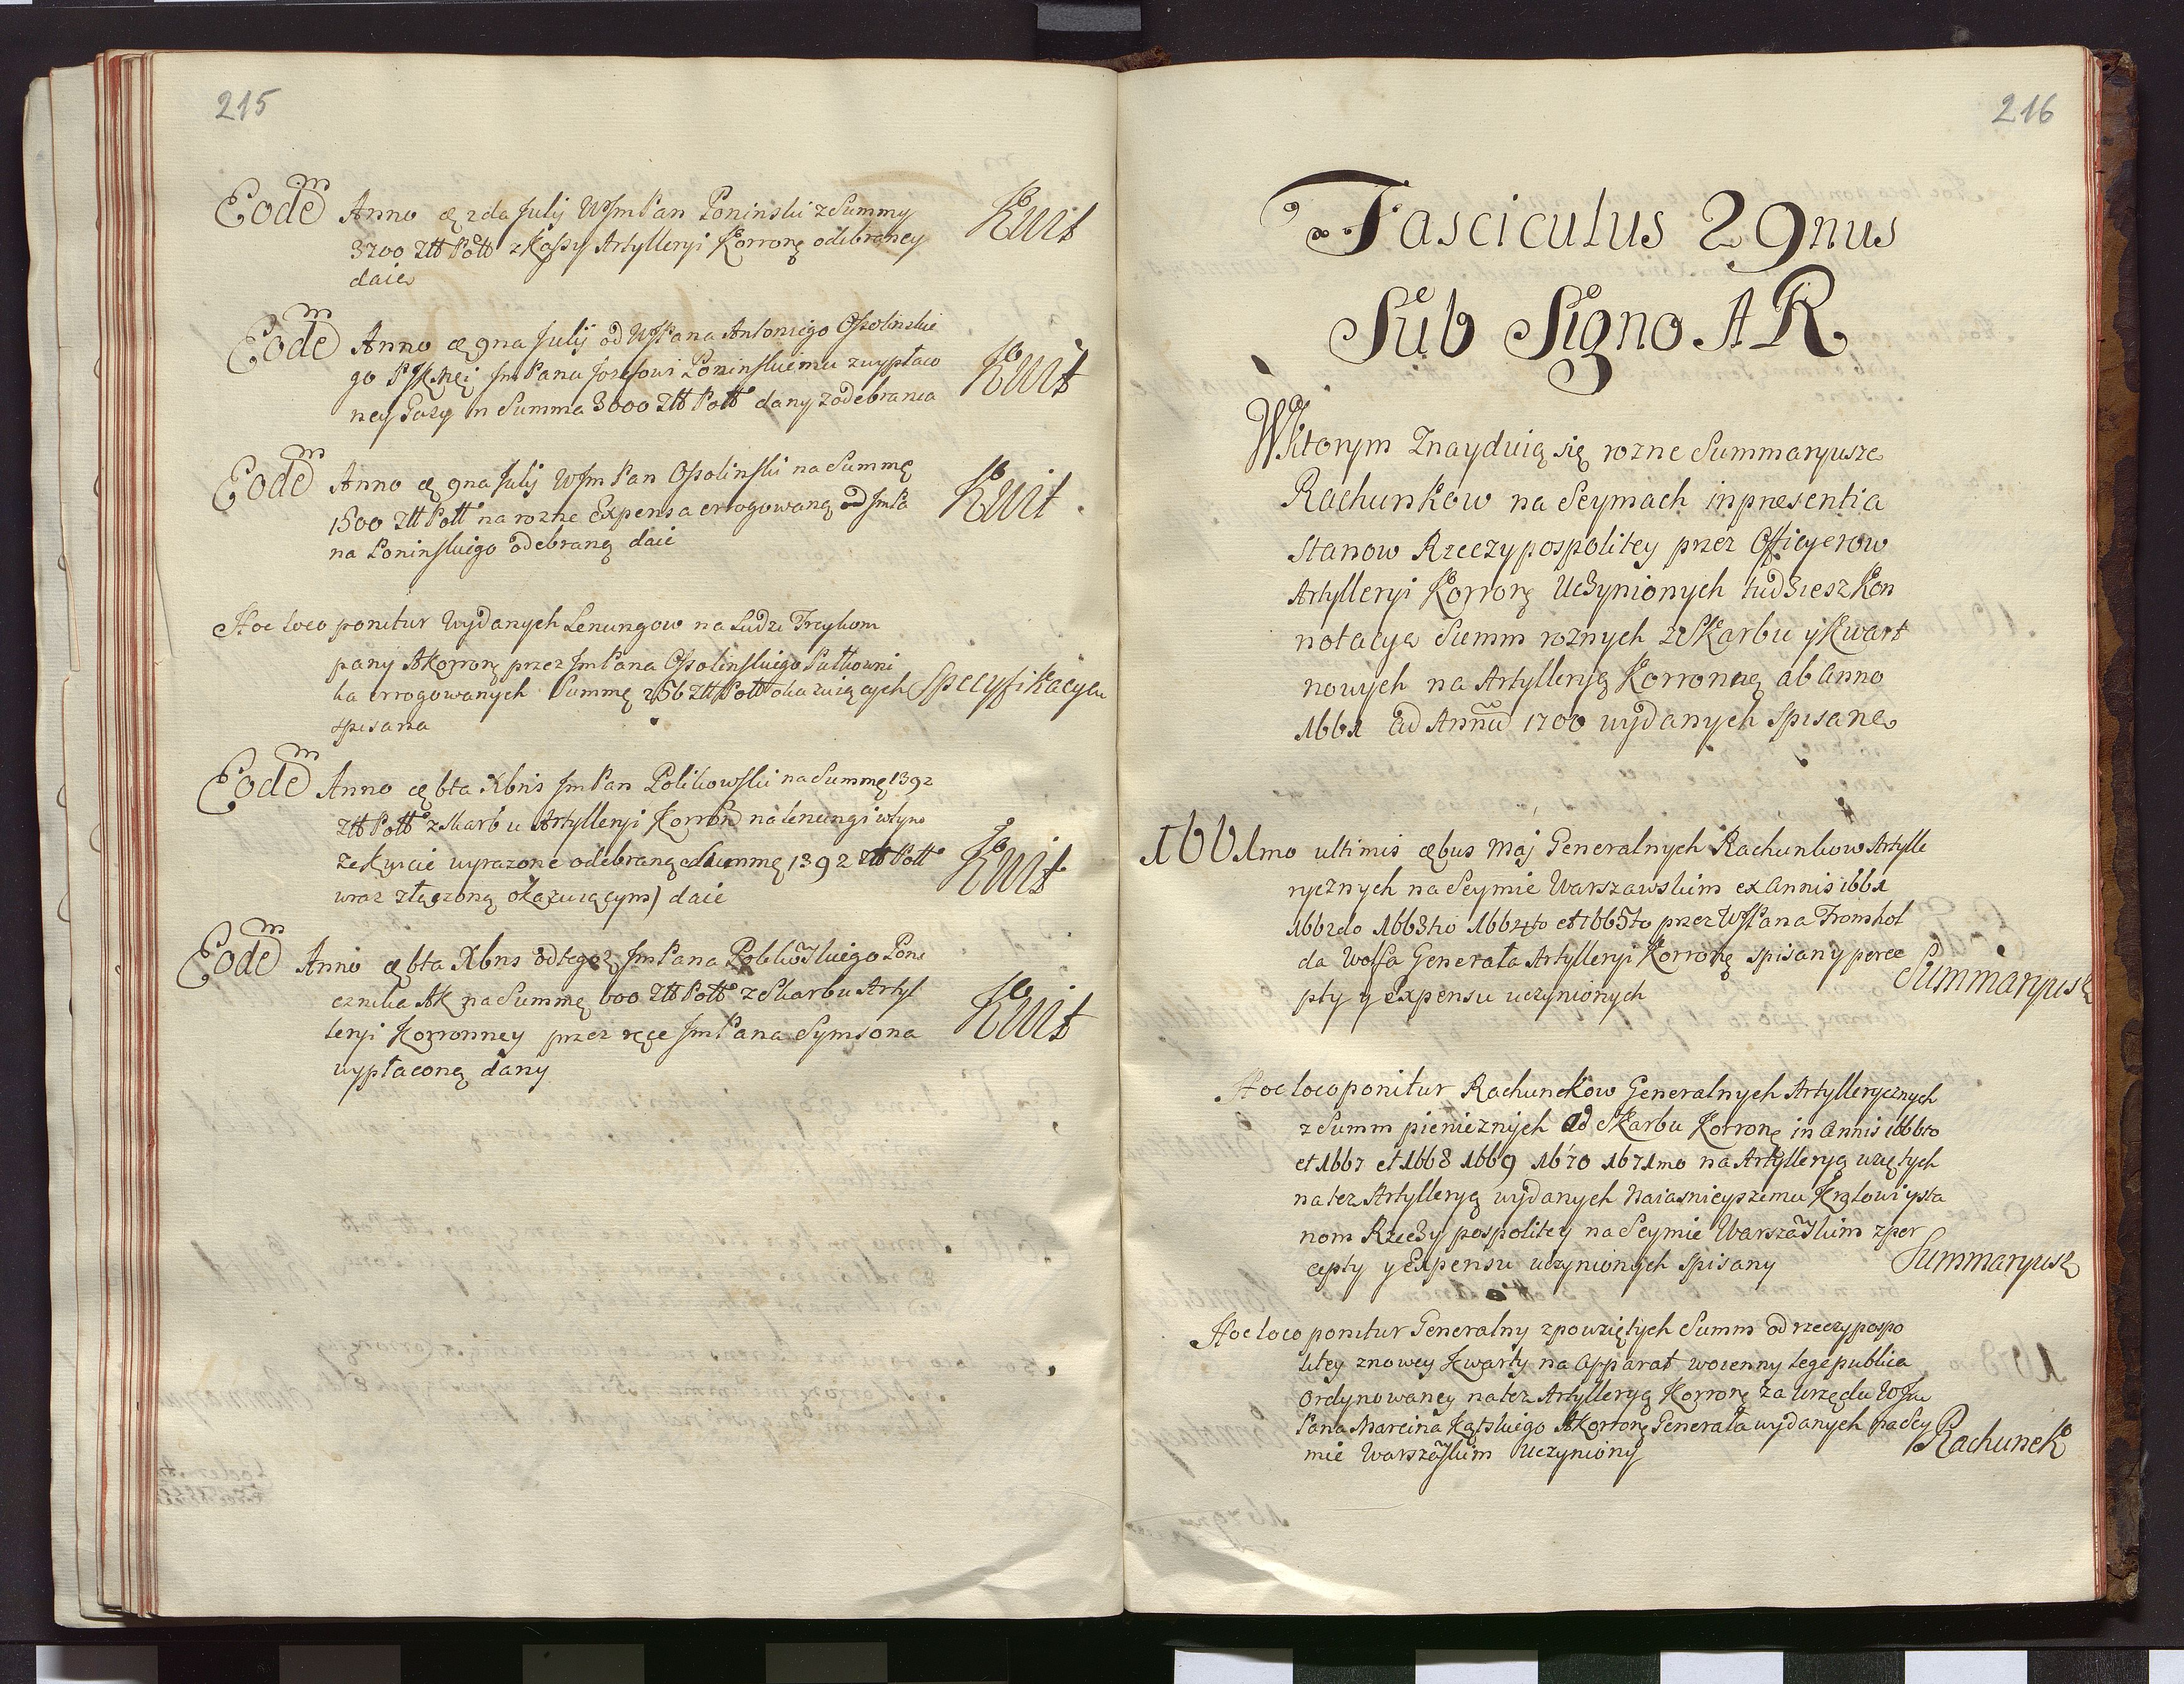 215
Eodem Anno æ 2da Julij WJmPan Poninski z Summy
3200 Ztt Pott z Kassy Artylleryi Korronę odebraney
daie
Kwit
Eodem Anno æ 9na Julij od WJPana Antoniego Ossolinskie
go JmPanu Jozefowi Poninskiemu z wypłaco
ney Gazy in Summa 3000 Ztt Pott dany z odebrania
Kwit
Eodem Anno æ 9na Julij WJmPan Ossolinski na Summę
1500 Ztt Pott na rozne Expensa errogowaną od JmPa
na Poninskiego odebraną daie
Kwit
Hoc loco ponitur Wydanych Lenungow na Ludzi Freykom
pany AKorronę przez JmPana Ossolinskiego Pułkowni
ka errogowanych Summę 256 Ztt Pott okazuiących Specyfikacya
spisana
Eodem Anno æ 6ta Xbris JmPan Polikowski na Summę 1392
Ztt Pott z Skarbu Artylleryi Korron na lenungi w tym
ze Kwicie wyrazone odebraną Summę 1392 Ztt Pott
wraz złączoną okazuiącym) daie
Kwit
Eodem Anno æ 6ta Xbris od tegoz JmPana Polikowskiego Poru
cznika AK na Summę 600 Ztt Pott z Skarbu Artyl
leryi Korronney przez ręce JmPana Symsona
wypłaconą dany
Kwit
216
Fasciculus 29nus
Sub Signo AR
W Ktorym Znayduią się rozne Summaryusze
Rachunkow na Seymach in præsentia
Stanow Rzeczypospolitey przez Officyerow
Artylleryi Korronę Uczynionych tudziesz Kon
notacye Summ roznych z Skarbu y Kwart
nowych na Artylleryą Korronną ab Anno
1661 ad Annũ 1700 wydanych spisane
1661mo ultimis æbus Maj Generalnych Rachunkow Artylle
rycznych na Seymie Warszawskim ex Annis 1661
1662do 1663tio 1664to et 1665to przez WJPana Fromhol
da Wolfa Generała Artylleryi Korronę spisany perce
pty y Expensu uczynionych
Summaryusz
Hoc loco ponitur Rachunekow Generalnych Artyllerycznych
z Summ pienieznych od Skarbu Korronę in Annis 1666to
et 1667 et 1668 1669 1670 1671mo na Artylleryą wziętych
na tez Artylleryą wydanych Naiasnieyszemu Krolowi y Sta
nom Rzeczypospolitey na Seymie Warszãskim z per
cepty y Expensu uczynionych spisany
Summaryusz
Hoc loco ponitur Generalny z powziętych Summ od rzeczypospo
litey z nowey Kwarty na Apparat woienny lege publica
Ordynowaney na tez Artylleryą Korronę za Urzędu WJm
Pana Marcina Kątskiego AKorronę Generała wydanych na Sey
mie Warszãskim Uczyniony
Rachunek